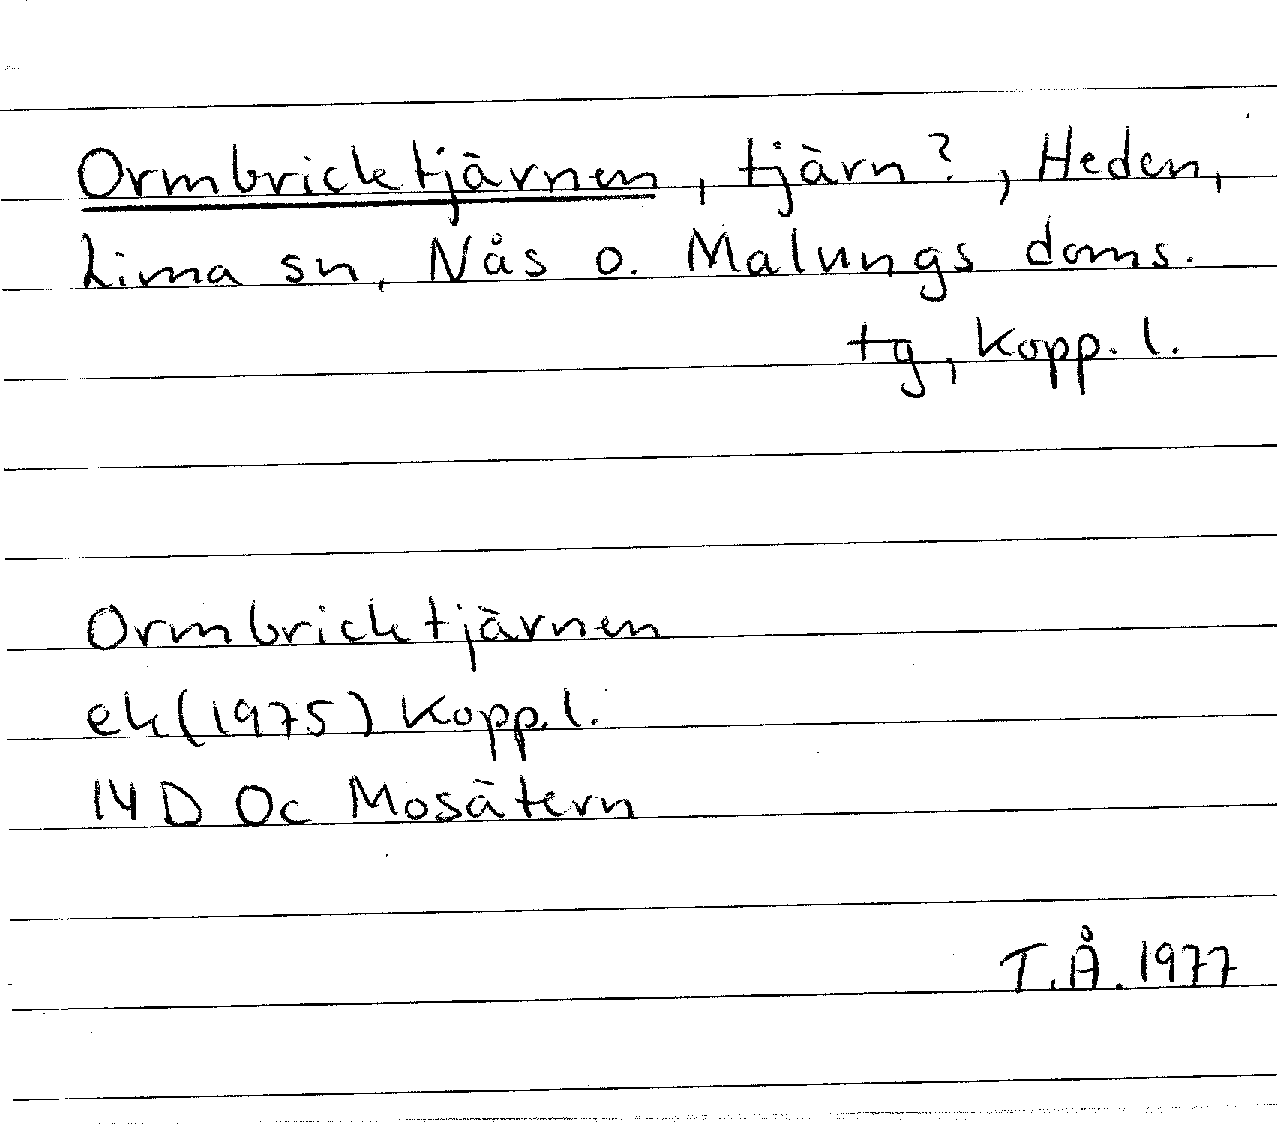 Ormbricktjärnen, tjärn?, Heden,
Lima sn, Nås o. Malungs doms.
tg, Kopp. l.
Ormbricktjärnen
ek (1975) Kopp. l.
14 D 0c Mosätern
T.Å. 1977